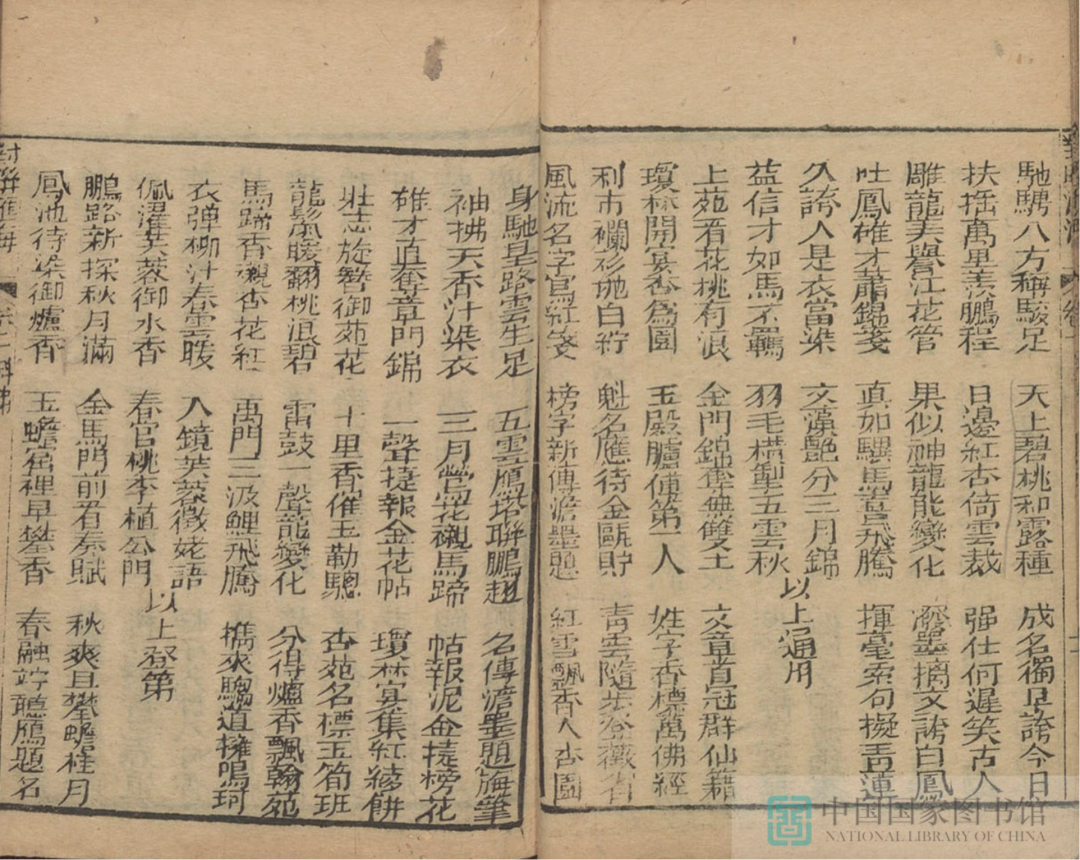 馳騁八方稱駿足 天上碧桃和露種 成名獨早誇今日
扶摇萬里羡鵬程 日邊紅杏倚雲裁 强仕何遲笑古人
雕龍美譽江花管 果似神龍能變化 潑墨摛文誇白鳳
吐鳳雄才蕭錦箋 真如驥馬喜飛騰 揮毫索句擬青蓮
久誇人是衣當染 文藻艷分三月錦 以上通用
益信才如馬不羈 羽毛横掣五雲秋
上苑看花桃有浪 金門錦舊無雙士 文章首冠群仙籍
瓊林開宴杏為園 玉殿臚傳第一人 姓字香標萬佛經
利市襴衫抛白紵 魁名應待金甌貯 青雲隨步登薇省
風流名字寫紅箋 榜字新傳澹墨題 紅雲飄香人杏園
身馳星路雲生足 五雲雁塔聯鵬趐 名傳澹墨題海筆
袖拂天香汁染衣 三月鶯花襯馬蹄 帖報泥金捷榜花
雄才直奪章門錦 一聲捷報金花帖 瓊林宴集紅綾餅
壯志旋簪御苑花 十里香催玉勒驄 杏苑名標玉筍班
龍鬣風暖翻桃浪碧 雷鼓一聲龍變化 分得爐香飄翰苑
馬蹄香襯杏花紅 禹門三汲鯉飛騰 擕來騶道擁鳴珂
衣彈柳汁春雲暖 入鏡芙蓉徵姥語 以上登第
佩濯芙蓉御水香 春官桃李植公門
鵬路新探秋月滿 金馬門前看奏賦 秋爽且攀蟾桂月
鳳池待染御爐香 玉蟾宫裡早攀香 春融竚聽雁題名
中国国家图书馆
NATIONAL LIBRARY OF CHINA